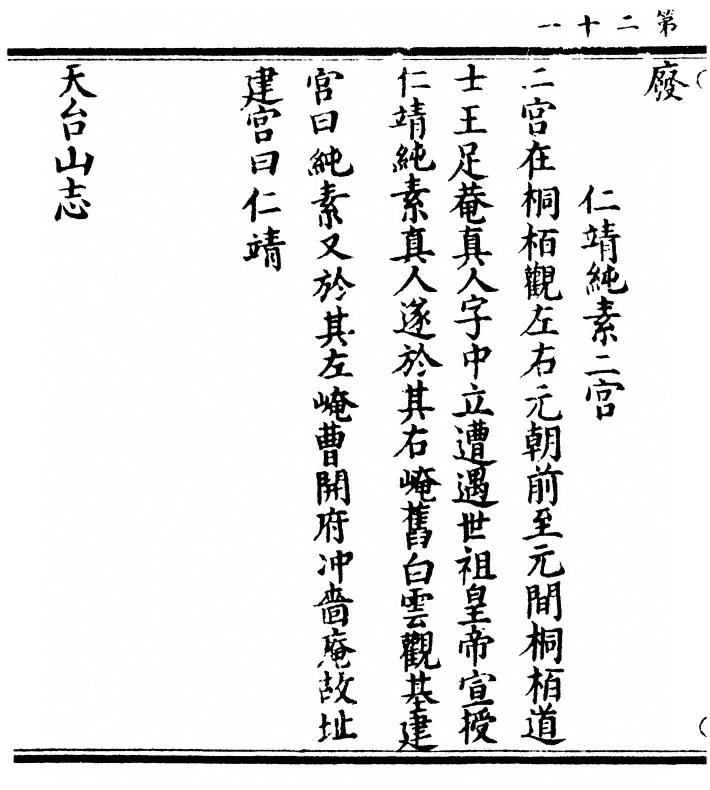 第二十一
廢
仁靖純素二宮
二宮在桐栢觀左右元朝前至元間桐栢道
士王足菴真人字中立遭遇世祖皇帝宣授
仁靖純素真人遂於其右崦舊白雲觀基建
宮曰純素又於其左崦曹開府冲嗇庵故址
建宮曰仁靖
天台山志